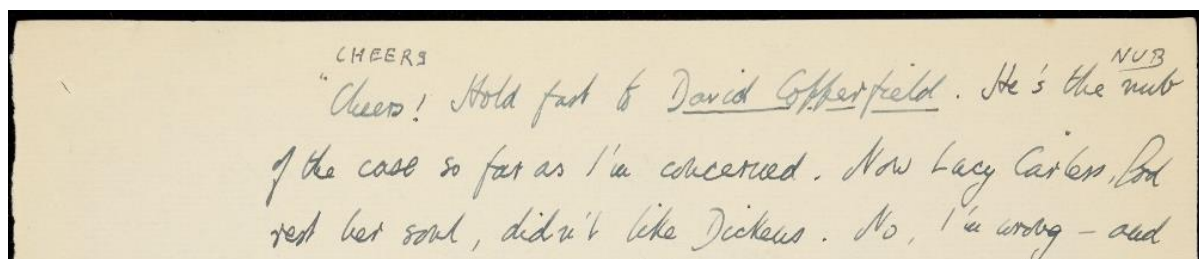 CHEERS NUB
"Cheers! Hold fast to David Copperfield. He's the nub
of the case so far as I'm concerned. Now Lacy Carless, God
rest her soul, didn't like Dickens. No, I'm wrong – and